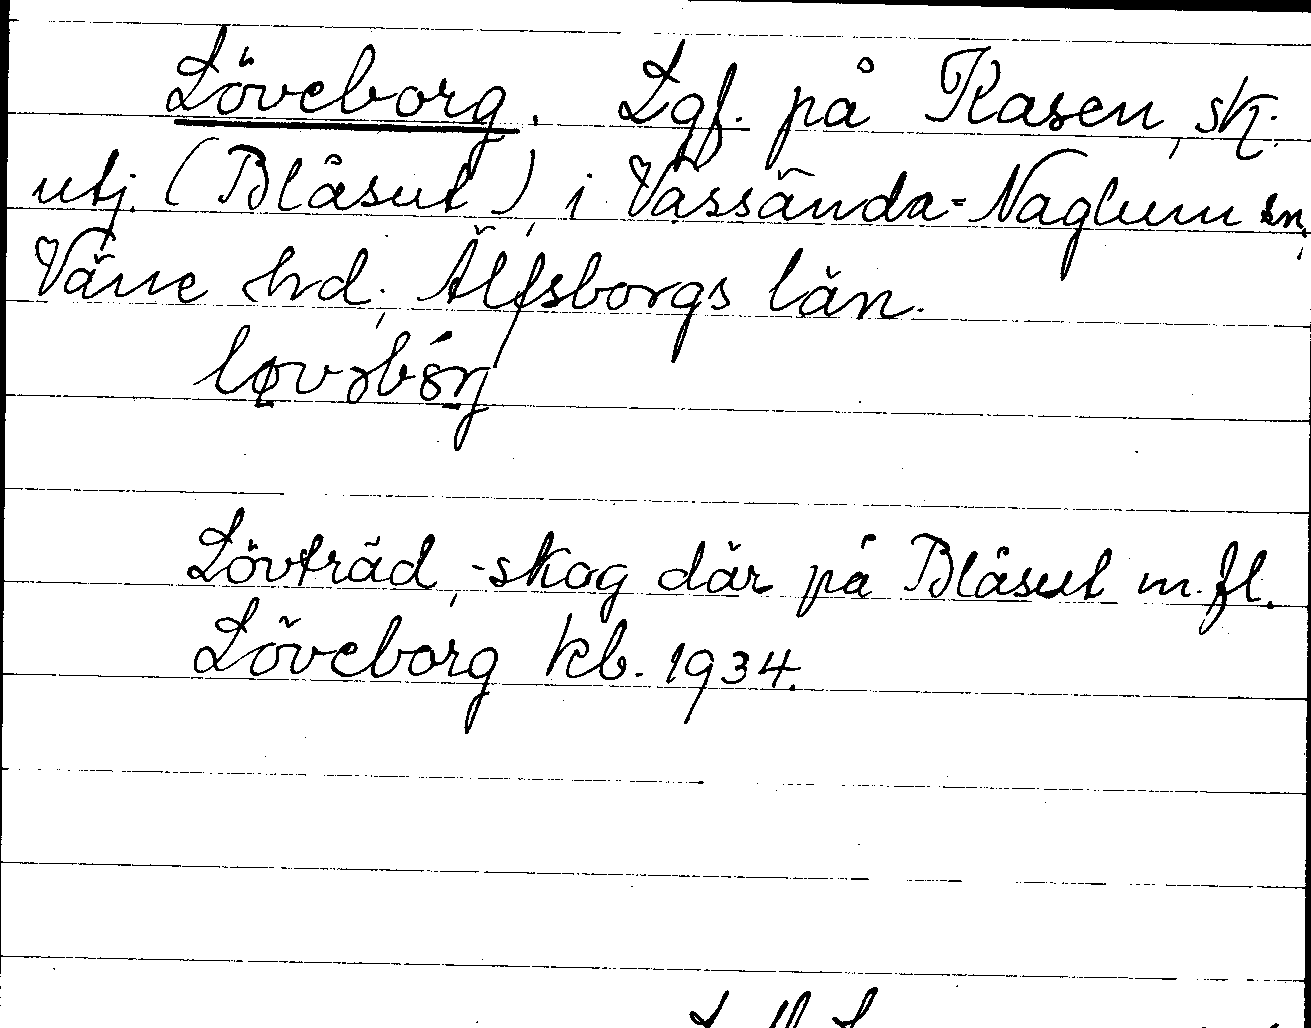 Löveborg. Lgf. på Kasen, sk.
utj. (Blåsut), i Vassända-Naglum sn,
Väne hd, Älfsborgs län.
Lövträd, -skog där på Blåsut m.fl.
Löveborg kb. 1934.